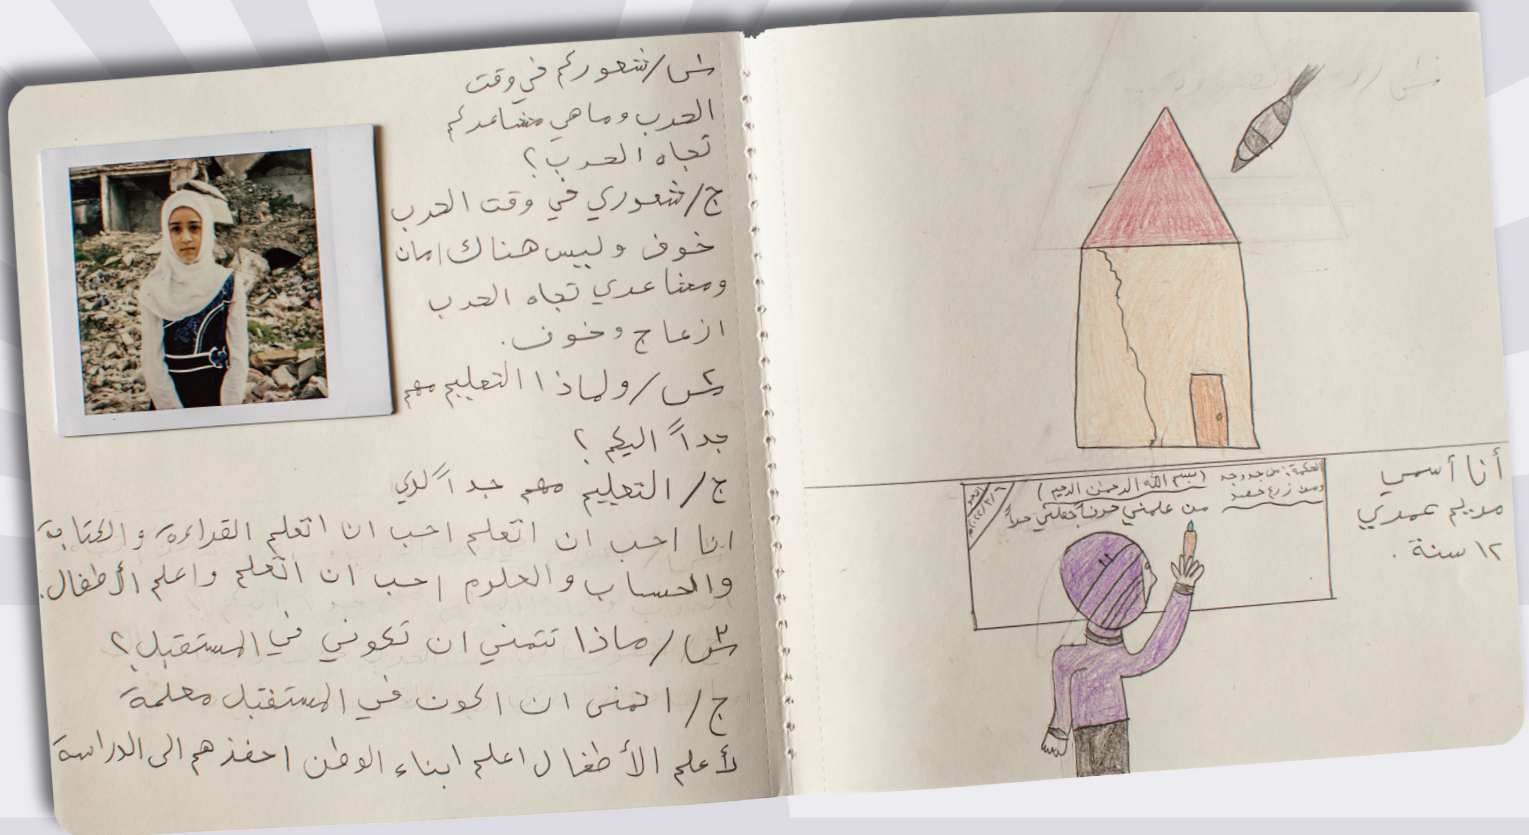 س١/شعوركم في وقت
الحرب وما هي مشاعركم
تجاه الحرب؟
ج/شعوري في وقت الحرب
خوف وليس هناك امان
ومشاعري تجاه الحرب
ازعاج وخوف.
س٢/ولماذا التعليم مهم
جداً اليكم؟
ج/ التعليم مهم جداً لدي
انا احب ان اتعلم احب ان اتعلم القراءة والكتابة
والحساب والعلوم احب ان اتعلم واعلم الأطفال.
س٣/ماذا تتمني ان تكوني في المستقبل؟
ج/ اتمنى ان اكون في المستقبل معلمة
لأعلم الأطفال اعلم ابناء الوطن احفزهم الى الدراسة
الحكمة: من جد وجد
ومن زرع حصد
(بسم الله الرحمن الرحيم)
من علمني حرفاً
أنا أسمي
مريم
١٢ سنة.